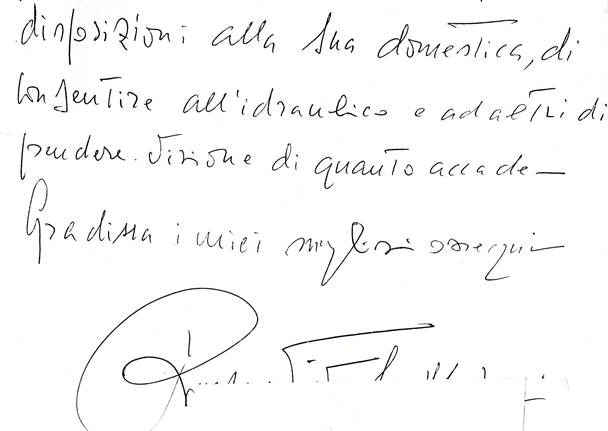 disposizioni alla Sua domestica, di
consentire all'idraulico e ad altri di
prendere visione di quanto accade –
Gradisca i miei migliori ossequi